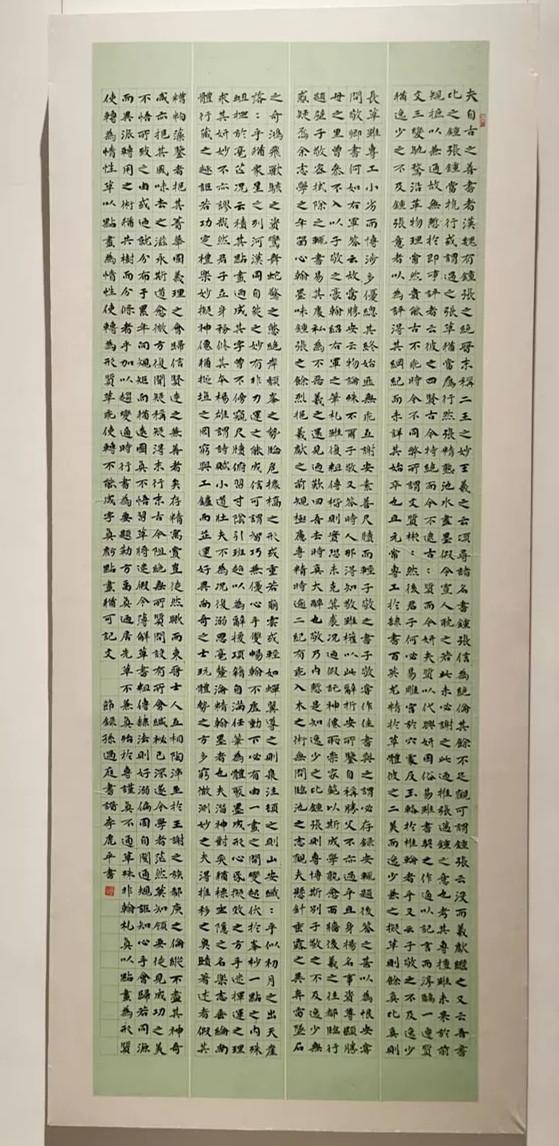 夫自古之善書者漢魏有鍾張之絕晉末稱二王之妙王羲之云頃尋諸名書鍾張信為絕倫其餘不足觀可謂鍾張云沒而羲獻繼之又云吾書
比之鍾張鍾當抗行或謂過之張草猶當鴈行然張精熟池水盡墨假令寡人耽之若此未必謝之此乃推張邁鍾之意也考其專擅雖未果於前
規摭以兼通故無慚於即事評者云彼之四賢古今特絕而今不逮古古質而今妍夫質以代興妍因俗易雖書契之作適以記言而淳醨一遷質
文三變馳騖沿革物理常然貴能古不乖時今不同弊所謂文質彬彬然後君子何必易雕宮於穴處反玉輅於椎輪者乎又云子敬之不及逸少
猶逸少之不及鍾張意者以為評得其綱紀而未詳其始卒也且元常專工於隸書百英尤精於草體彼之二美而逸少兼之擬草則餘真比真則
長草雖專工小劣而博涉多優總其終始匪無乖互謝安素善尺牘而輕子敬之書子敬嘗作佳書與之謂必存錄安輒題後答之甚以為恨安嘗
問敬卿書何如右軍答云故當勝安云物論殊不爾子敬又答時人那得知敬雖權以此辭折安所鑒自稱勝父不亦過乎且立身揚名事資尊顯勝
母之里曾參不入以子敬之豪翰紹右軍之筆札雖復粗傳楷則實恐未克箕裘況乃假託神仙恥崇家範以斯成學孰愈面牆後羲之往都臨行
題壁子敬密拭除之輒書易其處私為不惡羲之還見乃歎曰吾去時真大醉也敬乃內慚是知逸少之比鍾張則專博斯別子敬之不及逸少無
或疑焉余志學之年留心翰墨味鍾張之餘烈挹羲獻之前規極慮專精時逾二紀有乖入木之術無間臨池之志觀夫懸針垂露之異奔雷墜石
之奇鴻飛獸駭之資鸞舞蛇驚之態絕岸頹峯之勢臨危據槁之形或重若崩雲或輕如蟬翼導之則泉注頓之則山安纖纖乎似初月之出天崖
落落乎猶眾星之列河漢同自然之妙有非力運之能成信可謂智巧兼優心手雙暢翰不虛動下必有由一畫之間變起伏於峯杪一點之內殊
衄挫於毫芒況云積其點畫乃成其字曾不傍窺尺牘俯習寸陰引班超以為辭援項籍自滿任筆為體聚墨成形心昏擬效之方手迷揮運之理
求其妍妙不亦謬哉然君子立身務修其本楊雄謂詩賦小道壯夫不為況復溺思毫釐淪精翰墨者也夫潛神對奕猶標坐隱之名樂志垂綸尚
體行藏之趣詎若功定禮樂妙擬神仙猶埏埴之罔窮與工鑪而並運好異尚奇之士玩體勢之多方窮微測妙之夫得推移之奧賾著述者假其
糟粕藻鑒者挹其菁華固義理之會歸信賢達之兼善者矣存精寓賞豈徒然歟而東晉士人互相陶淬至於王謝之族郗庾之倫縱不盡其神奇
咸亦挹其風味去之滋永斯道愈微方復聞疑稱疑得末行末古今阻絕無所質問設有所會緘秘已深遂令學者茫然莫知領要徒見成功之美
不悟所致之由或乃就分布于累年向規矩而猶遠圖真不悟習草將迷假令薄解草書粗傳隸法則好溺偏固自閡通規詎知心手會歸若同源
而異派轉用之術猶共樹而分條者乎加以趨變適時行書為要題勒方畐真乃居先草不兼真殆於專謹真不通草殊非翰札真以點畫為形質
使轉為情性草以點畫為情性使轉為形質草乖使轉不能成字真虧點畫猶可記文 節錄孫過庭書譜李虎平書